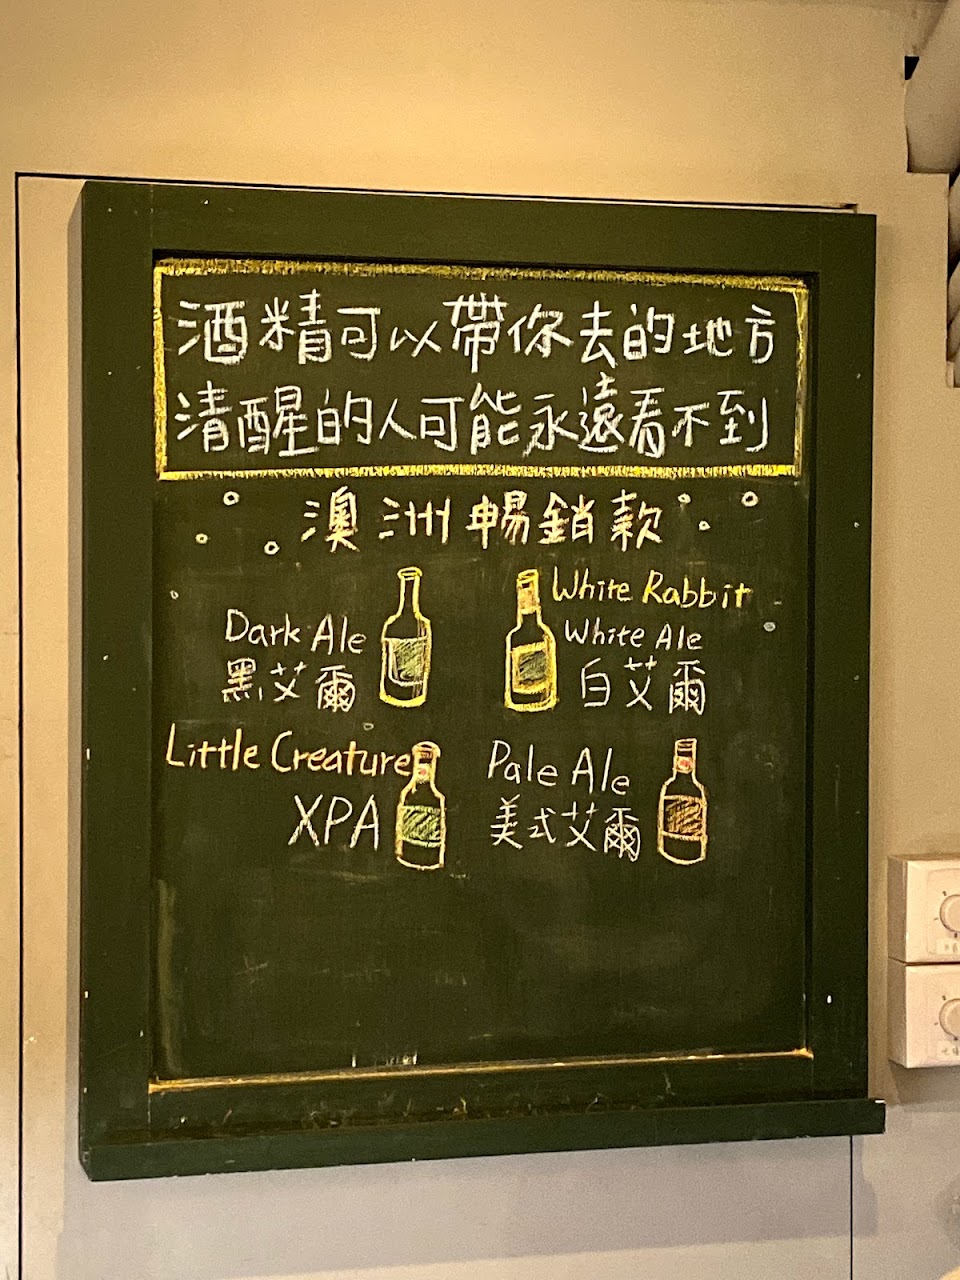 酒精可以帶你去的地方
清醒的人可能永遠看不到
澳洲暢銷款
Dark Ale
黑艾爾
White Rabbit
White Ale
白艾爾
Little Creature
XPA
Pale Ale
美式艾爾